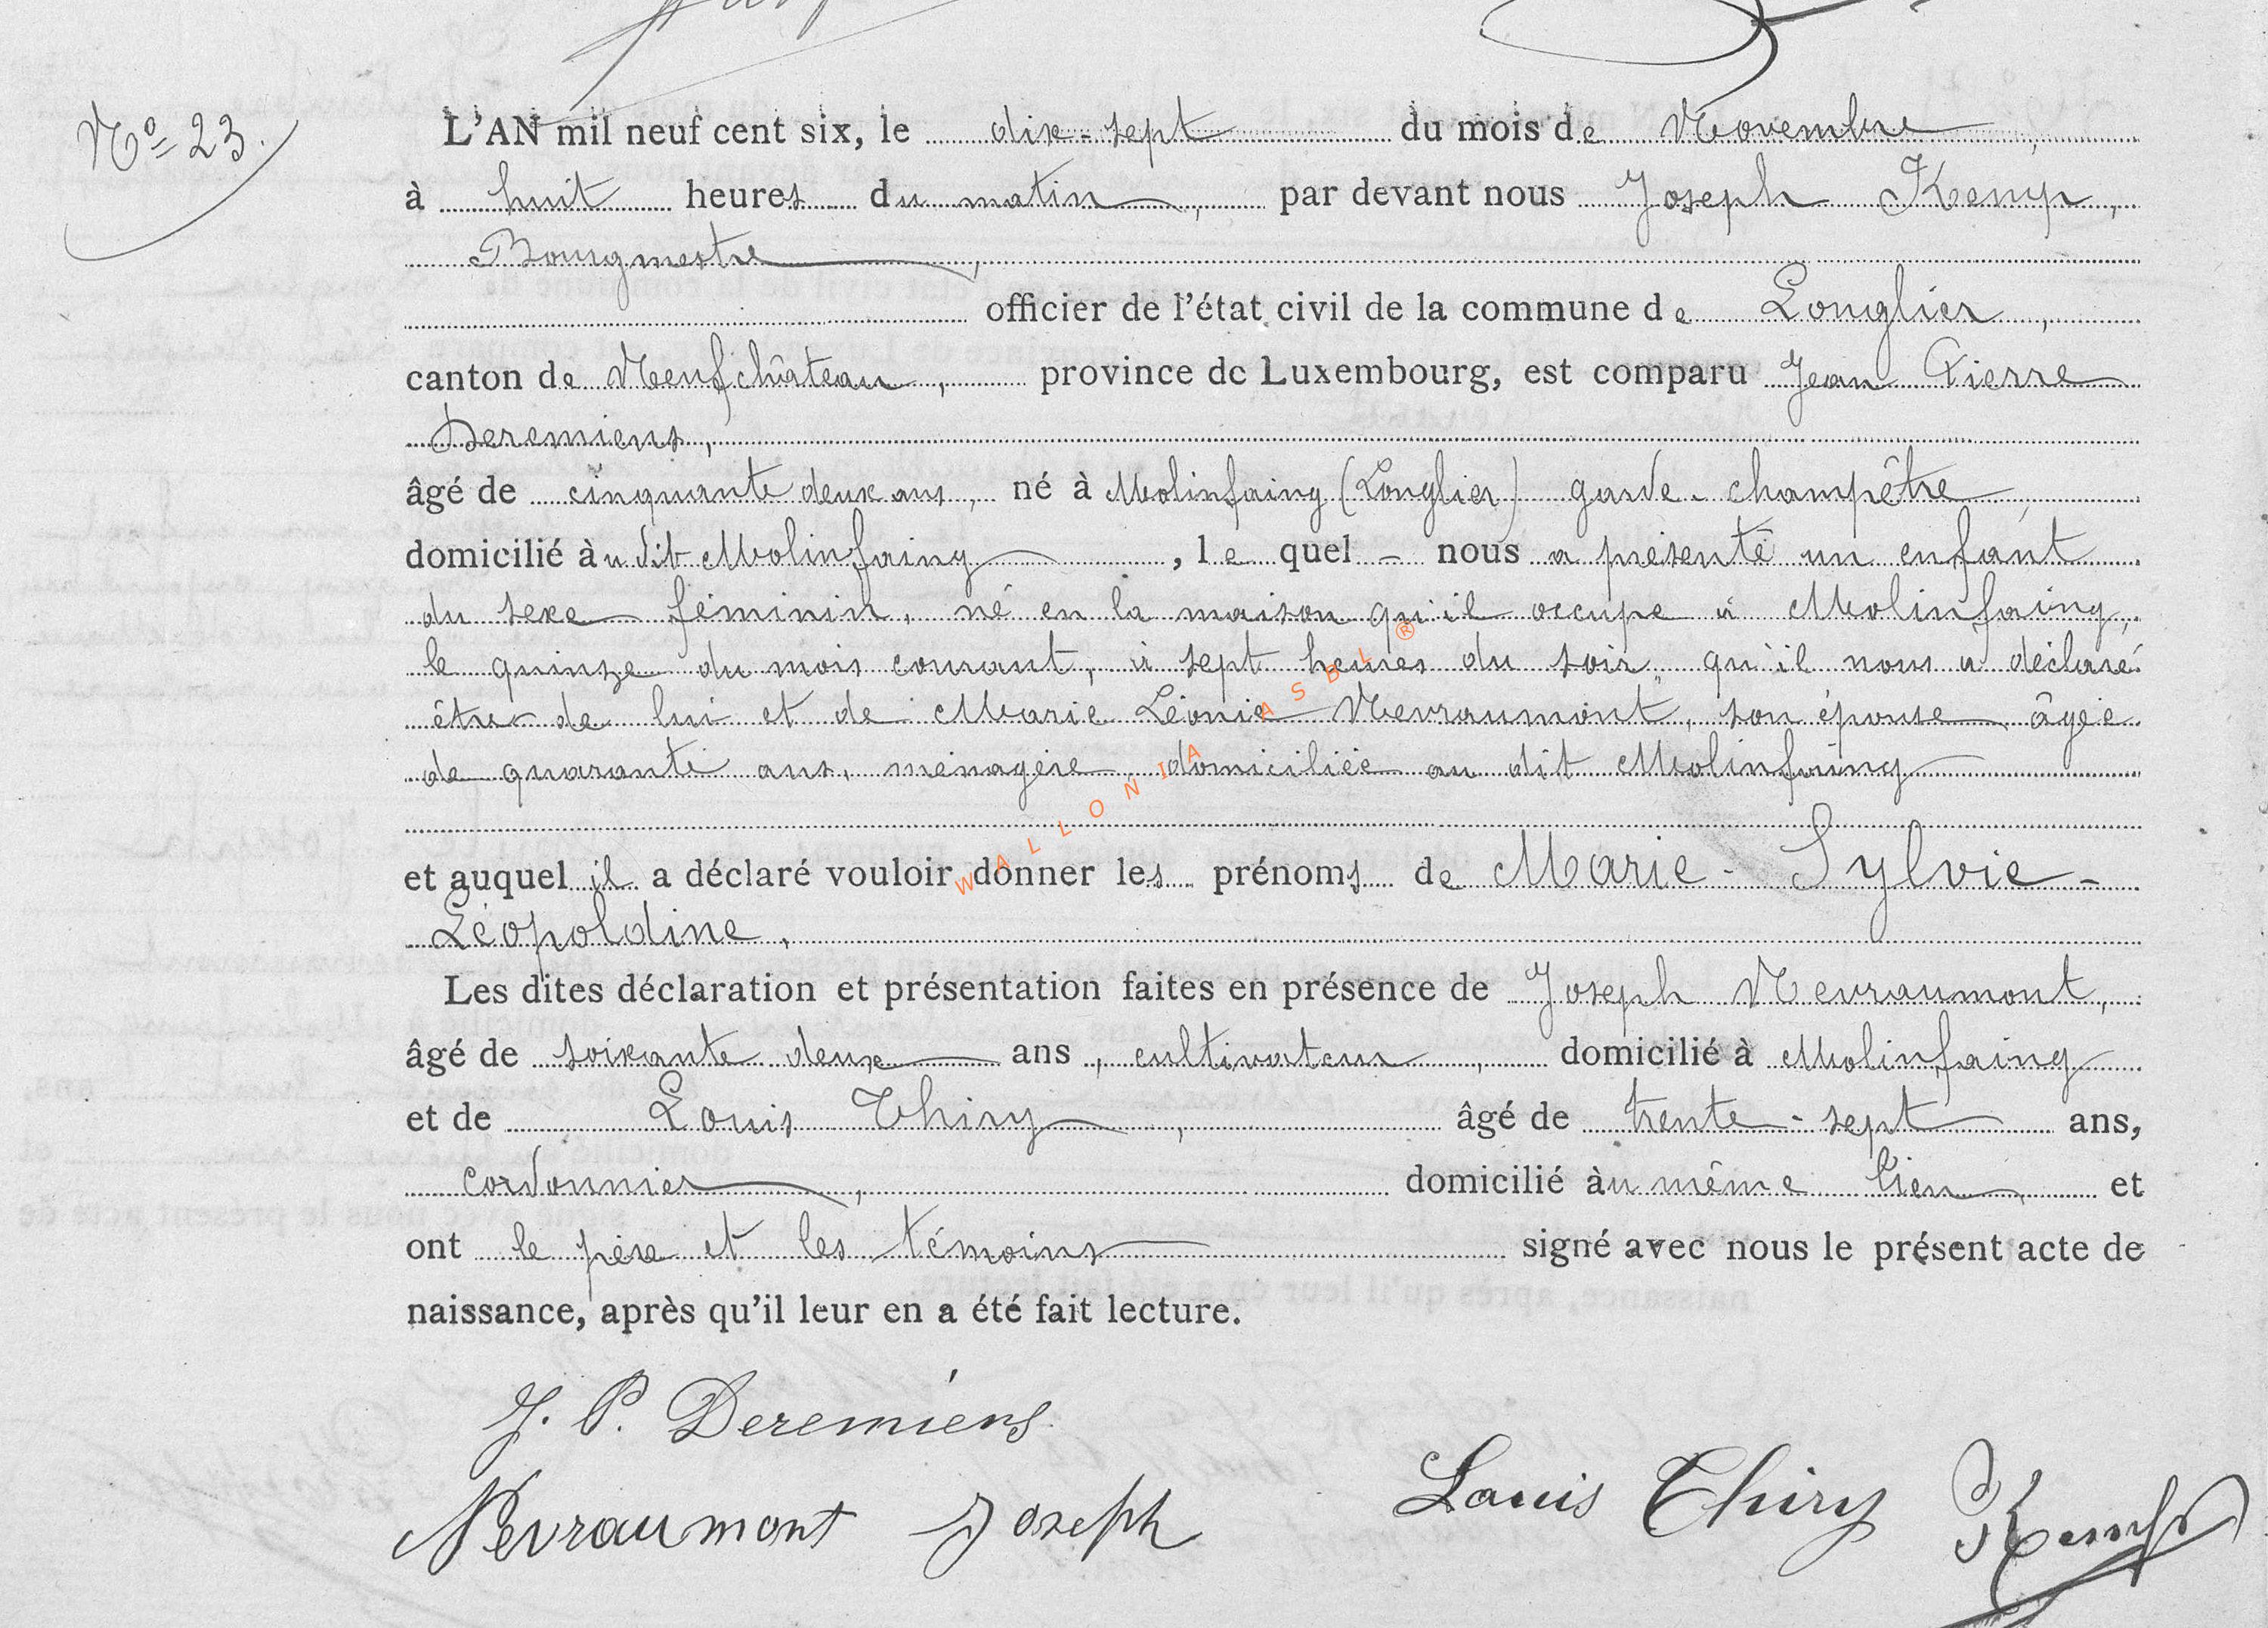 Nº 23.
L'AN mil neuf cent six, le dix-sept du mois de Novembre,
à huit heures du matin, par devant nous Joseph Kemp,
Bourgmestre,
officier de l'état civil de la commune de Longlier,
canton de Neufchâteau, province de Luxembourg, est comparu Jean Pierre
Deremiens,
âgé de cinquante deux ans, né à Molinfaing (Longlier) garde-champêtre,
domicilié àu dit Molinfaing, le quel - nous a présenté un enfant
du sexe féminin, né en la maison qu'il occupe à Molinfaing,
le quinze du mois courant, à sept heures du soir, qu'il nous a déclaré
être de lui et de Marie Léonie Nevraumont, son épouse âgée
de quarante ans, ménagère, domiciliée au dit Molinfaing
et auquel il a déclaré vouloir donner les prénoms de Marie-Sylvie-
Léopoldine,
Les dites déclaration et présentation faites en présence de Joseph Nevraumont,
âgé de soixante deux ans, cultivateur, domicilié à Molinfaing
et de Louis Thiry, âgé de trente-sept ans,
cordonnier, domicilié àu même lieu, et
ont le père et les témoins signé avec nous le présent acte de
naissance, après qu'il leur en a été fait lecture.
J. P. Deremiens
Nevraumont Joseph Louis Thiry Kemp
WALLONIA ASBL ®